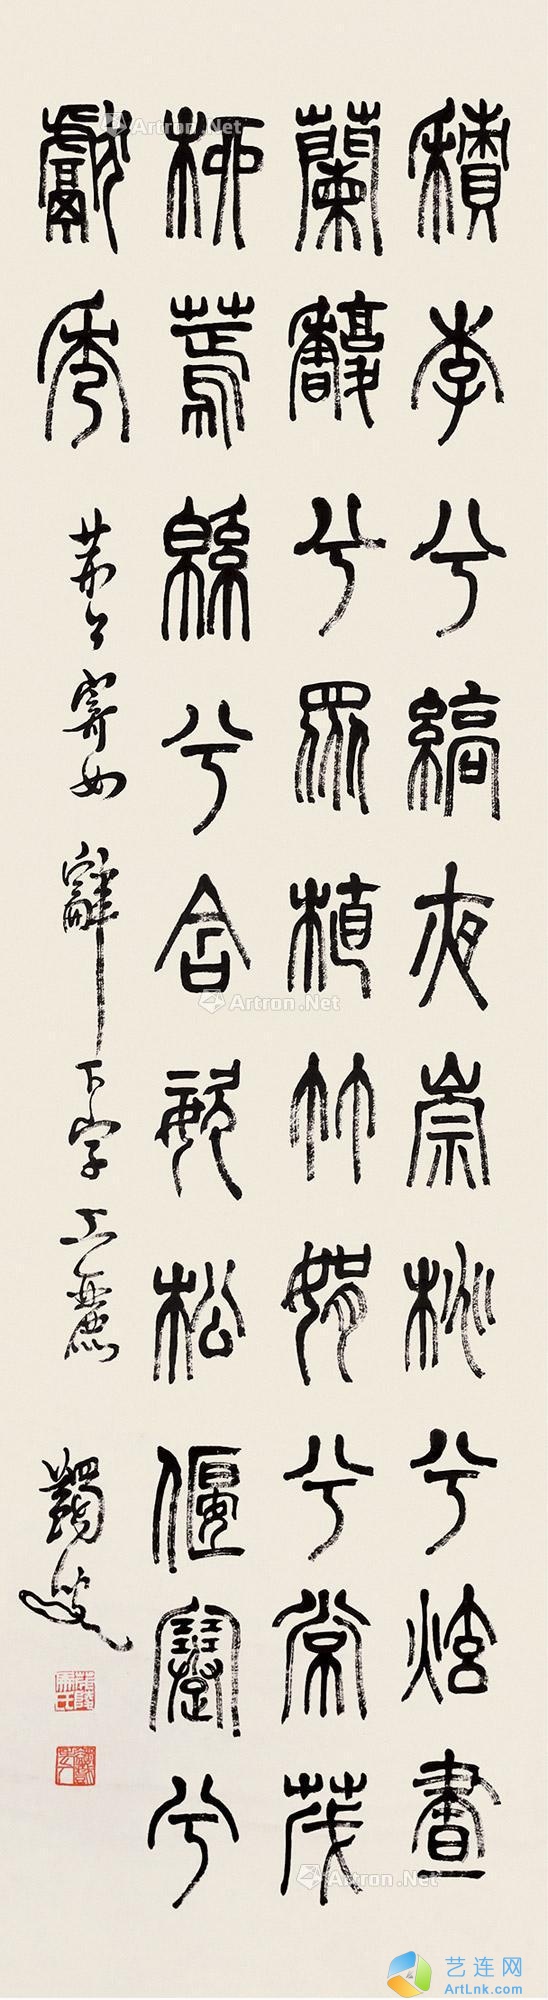 積李兮縞夜崇桃兮炫晝
蘭馥兮眾植竹娟兮常茂
柳蔫緜兮含姿松偃蹇兮
獻秀
荊公寄女辭下字工麗
蠲叟
Artron.Net
Artron.Net
Artron.Net
艺连网
ArtLnk.com